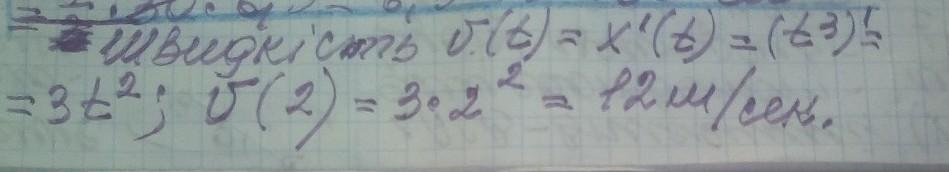 Швидкість v(t) = x'(t) = (t³)' =
= 3t²; v(2) = 3·2² = 12 м/сек.